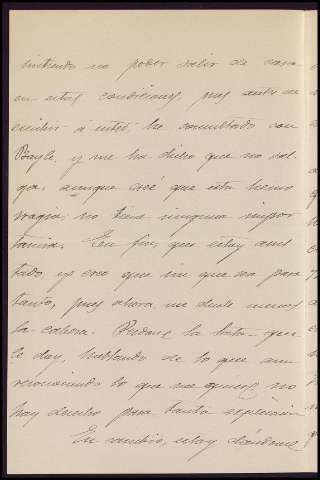 sintiendo no poder salir de casa
en estas condiciones, pues antes de
escribir á usted, he consultado con
Bayle, y me ha dicho que no sal-
ga, aunque cree que esta hemo
rragia no tiene ninguna impor
tancia. En fin, que estoy asus
tado y creo que sin que sea para
tanto, pues ahora me duele menos
la cabeza. Perdone la lata que
le doy, hablando de lo que aun
reconociendo lo que me quieres no
hay dentro para tanta
En cambio, estoy dándome